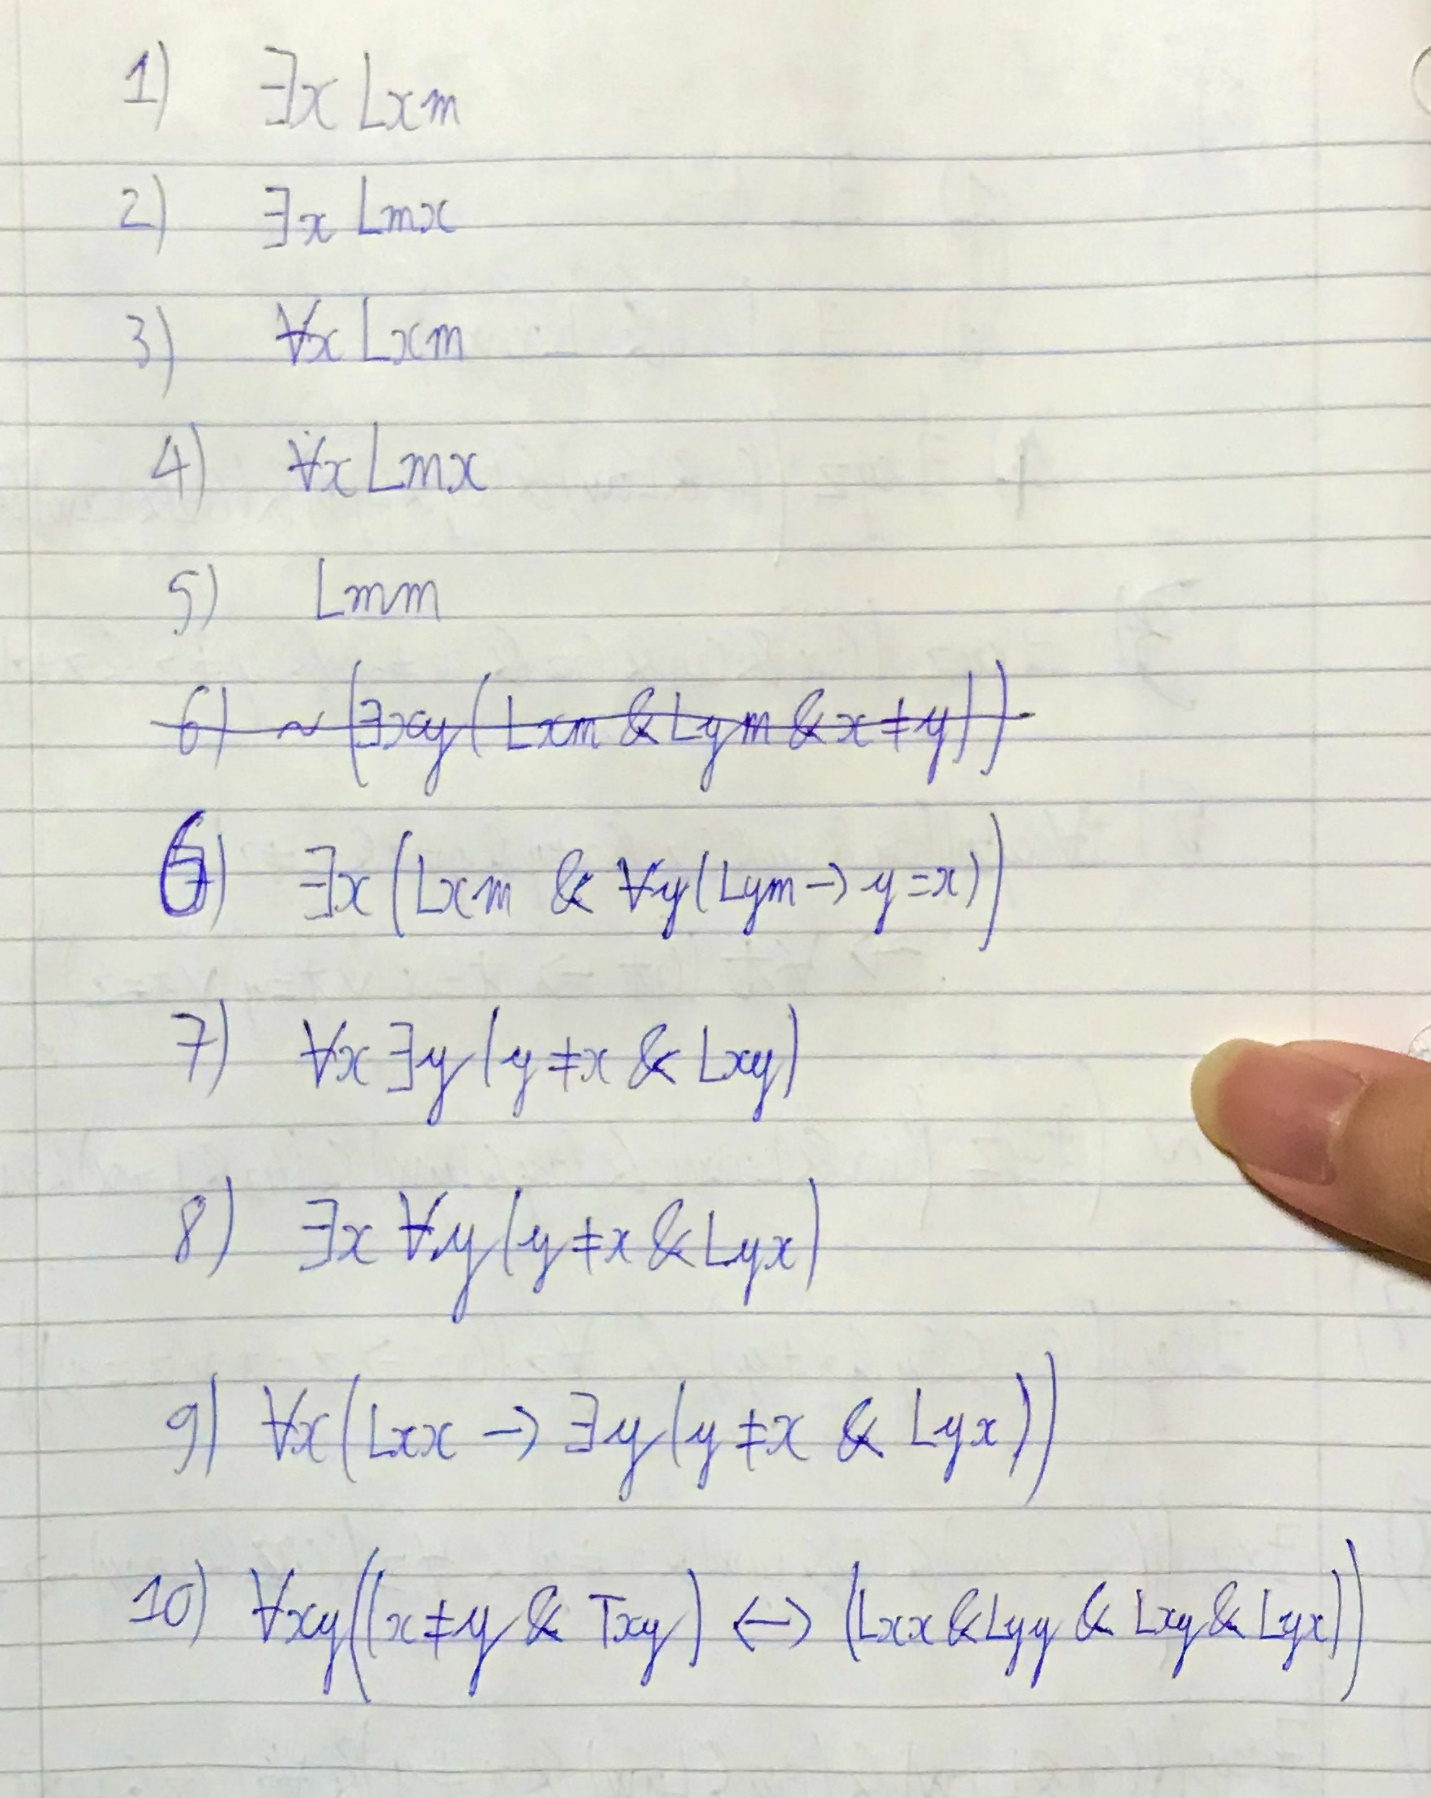 1) ∃x Lxm
2) ∃x Lmx
3) ∀x Lxm
4) ∀x Lmx
5) Lmm
6) ~ (∃xy (Lxm & Lym & x ≠ y))
6) ∃x (Lxm & ∀y (Lym → y = x))
7) ∀x ∃y (y ≠ x & Lxy)
8) ∃x ∀y (y ≠ x & Lyx)
9) ∀x (Lxx → ∃y (y ≠ x & Lyx))
10) ∀xy ((x ≠ y & Txy) ↔ (Lxx & Lyy & Lxy & Lyx))